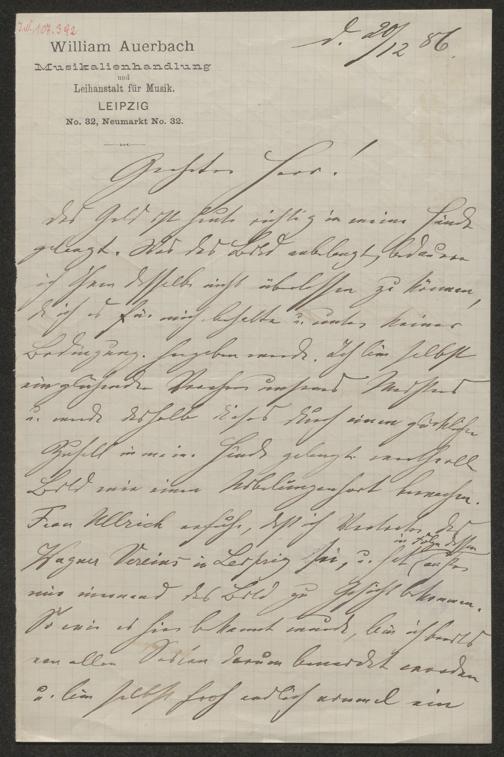 J.N. 107.392
William Auerbach
Musikalienhandlung
und
Leihanstalt für Musik.
LEIPZIG
No. 32, Neumarkt No. 32.
d. 20/12 86.
Geehrter Herr!
das Geld ist heute richtig in meine Hände
gelangt. Was das Bild anbelangt, bedauere
ich Ihnen dasselbe nicht überlassen zu können,
da ich es für mich behalte u. unter keiner
Bedingung hergeben werde. Ich bin selbst
ein glühender Verehrer unseres Meisters
u. werde deshalb dieses durch einen glücklichen
Zufall in meine Hände gelangte werthvolle
Bild wie einen Nibelungenhort bewachen.
Frau Ullrich erfuhr, daß ich Vertreter des
Wagner Vereins in Leipzig sei, u. hat in Folge dessen außer
mir niemand das Bild zu Gesicht bekommen.
So wie es hier bekannt wurde, bin ich bereits
von allen Seiten darum beneidet worden
u. bin selbst froh endlich einmal ein